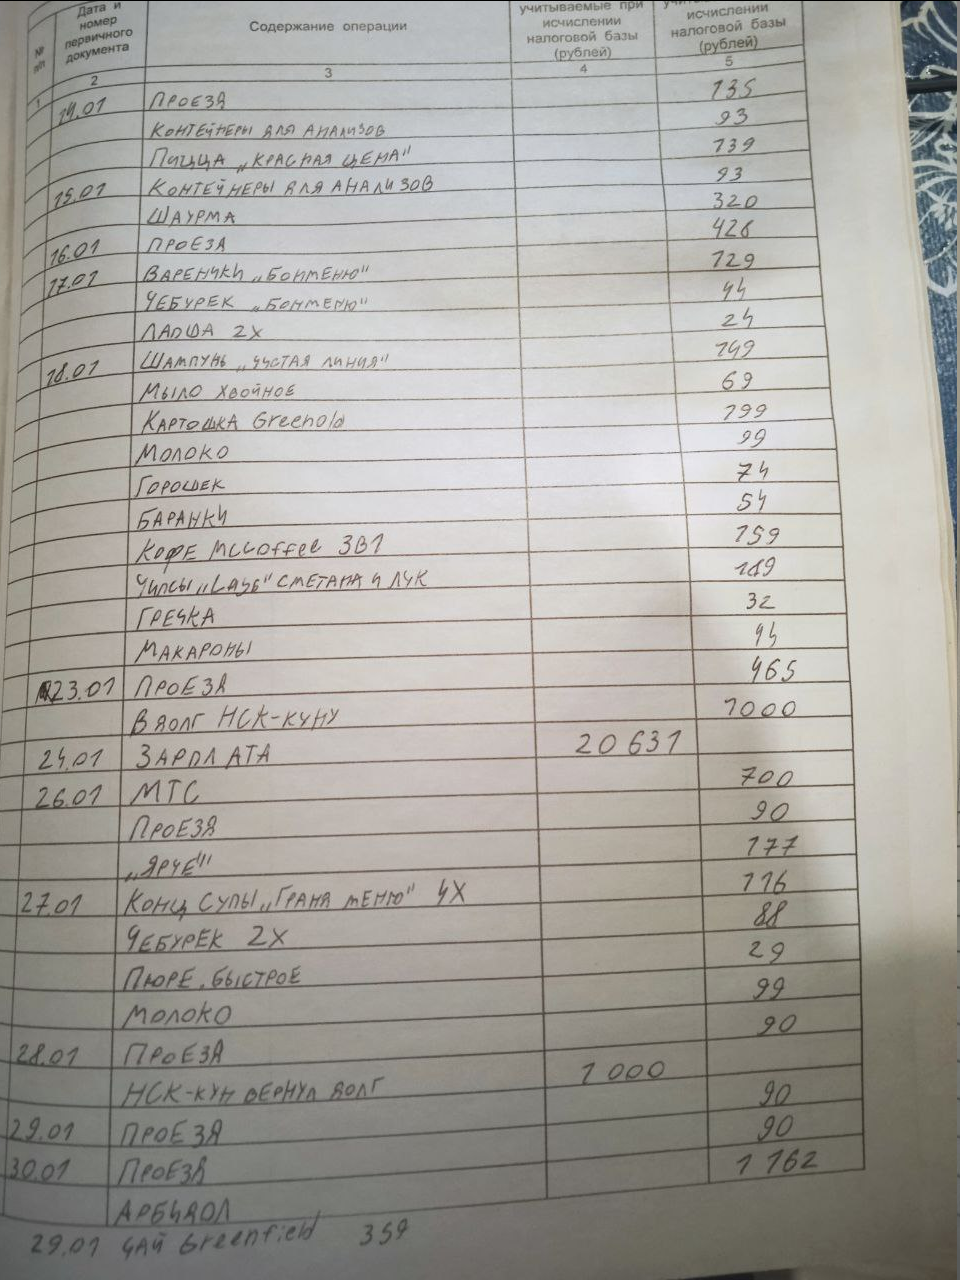 Дата и
номер
первичного
документа
№
п/п
Содержание операции
учитываемые при
исчислении
налоговой базы
(рублей)
исчислении
налоговой базы
(рублей)
1 2 3 4 5
14.01 ПРОЕЗД 135
КОНТЕЙНЕРЫ ДЛЯ АНАЛИЗОВ 93
ПИЦЦА „КРАСНАЯ ЦЕНА" 139
15.01 КОНТЕЙНЕРЫ ДЛЯ АНАЛИЗОВ 93
ШАУРМА 320
16.01 ПРОЕЗД 428
17.01 ВАРЕНИКИ „БОНМЕНЮ" 129
ЧЕБУРЕК „БОНМЕНЮ" 44
ЛАПША 2Х 24
18.01 ШАМПУНЬ „ЧИСТАЯ ЛИНИЯ" 149
МЫЛО ХВОЙНОЕ 69
КАРТОШКА Greenold 199
МОЛОКО 99
ГОРОШЕК 74
БАРАНКИ 54
КОФЕ McCoffee 3В1 159
ЧИПСЫ „Lays" СМЕТАНА И ЛУК 189
ГРЕЧКА 32
МАКАРОНЫ 44
23.01 ПРОЕЗД 465
В ДОЛГ НСК-КУНУ 1000
24.01 ЗАРПЛАТА 20 631
26.01 МТС 700
ПРОЕЗД 90
„ЯРЧЕ!" 177
27.01 КОНЦ СУПЫ „ГРАНД МЕНЮ" 4Х 116
ЧЕБУРЕК 2Х 88
ПЮРЕ БЫСТРОЕ 29
МОЛОКО 99
28.01 ПРОЕЗД 90
НСК-КУН ВЕРНУЛ ДОЛГ 1 000
29.01 ПРОЕЗД 90
30.01 ПРОЕЗД 90
АРБИДОЛ 1 162
29.01 ЧАЙ Greenfield 359